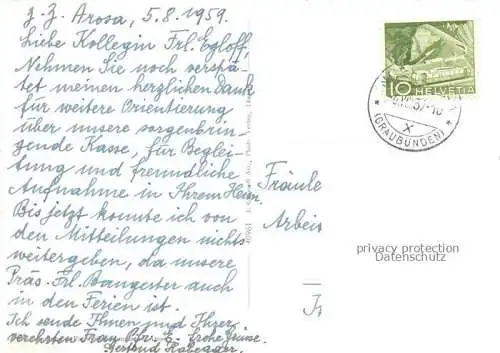 z. Z. Arosa, 5.8.1959.
Liebe Kollegin Frl. Egloff,
Nehmen Sie noch verspä-
tet meinen herzlichen Dank
für weitere Orientierung
über unsere sorgenbrin-
gende Kasse, für Beglei-
tung und freundliche
Aufnahme in Ihrem Heim.
Bis jetzt konnte ich von
den Mitteilungen nichts
weitergeben, da unsere
Präs. Frl. Bangerter auch
in den Ferien ist.
Ich sende Ihnen und Ihrer
verehrten Frau E. frohe Grüsse.
Gertrud
10 HELVETIA
(GRAUBÜNDEN)
Fräule
Arbeis
privacy protection
Datenschutz